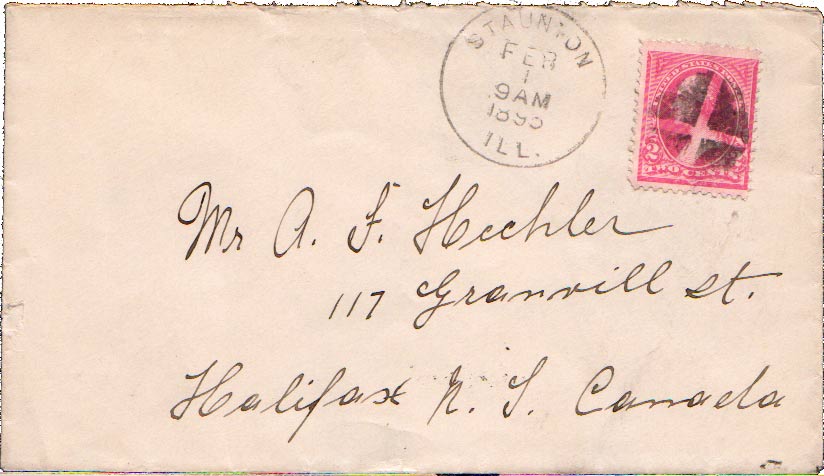 STAUNTON
FEB
1
9AM
1895
ILL.
UNITED STATES
2
TWO CENTS
Mr A. F. Hechler
117 Granvill st.
Halifax N. S. Canada